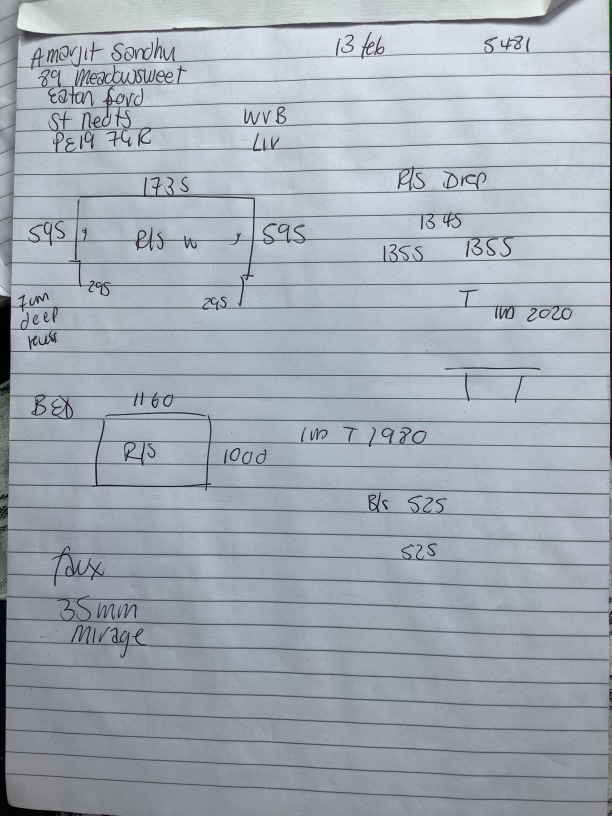 Amarjit Sandhu 13 feb 5481
89 Meadowsweet
Eaton ford
St Neots WVB
PE19 7GR LIV
1735 R/S Drop
595 R/S w 595 1345
1355 1355
295 295
7cm
deep T 2020
BED 1160
R/S 1000 T 1980
B/s 525
525
faux
35mm
Mirage